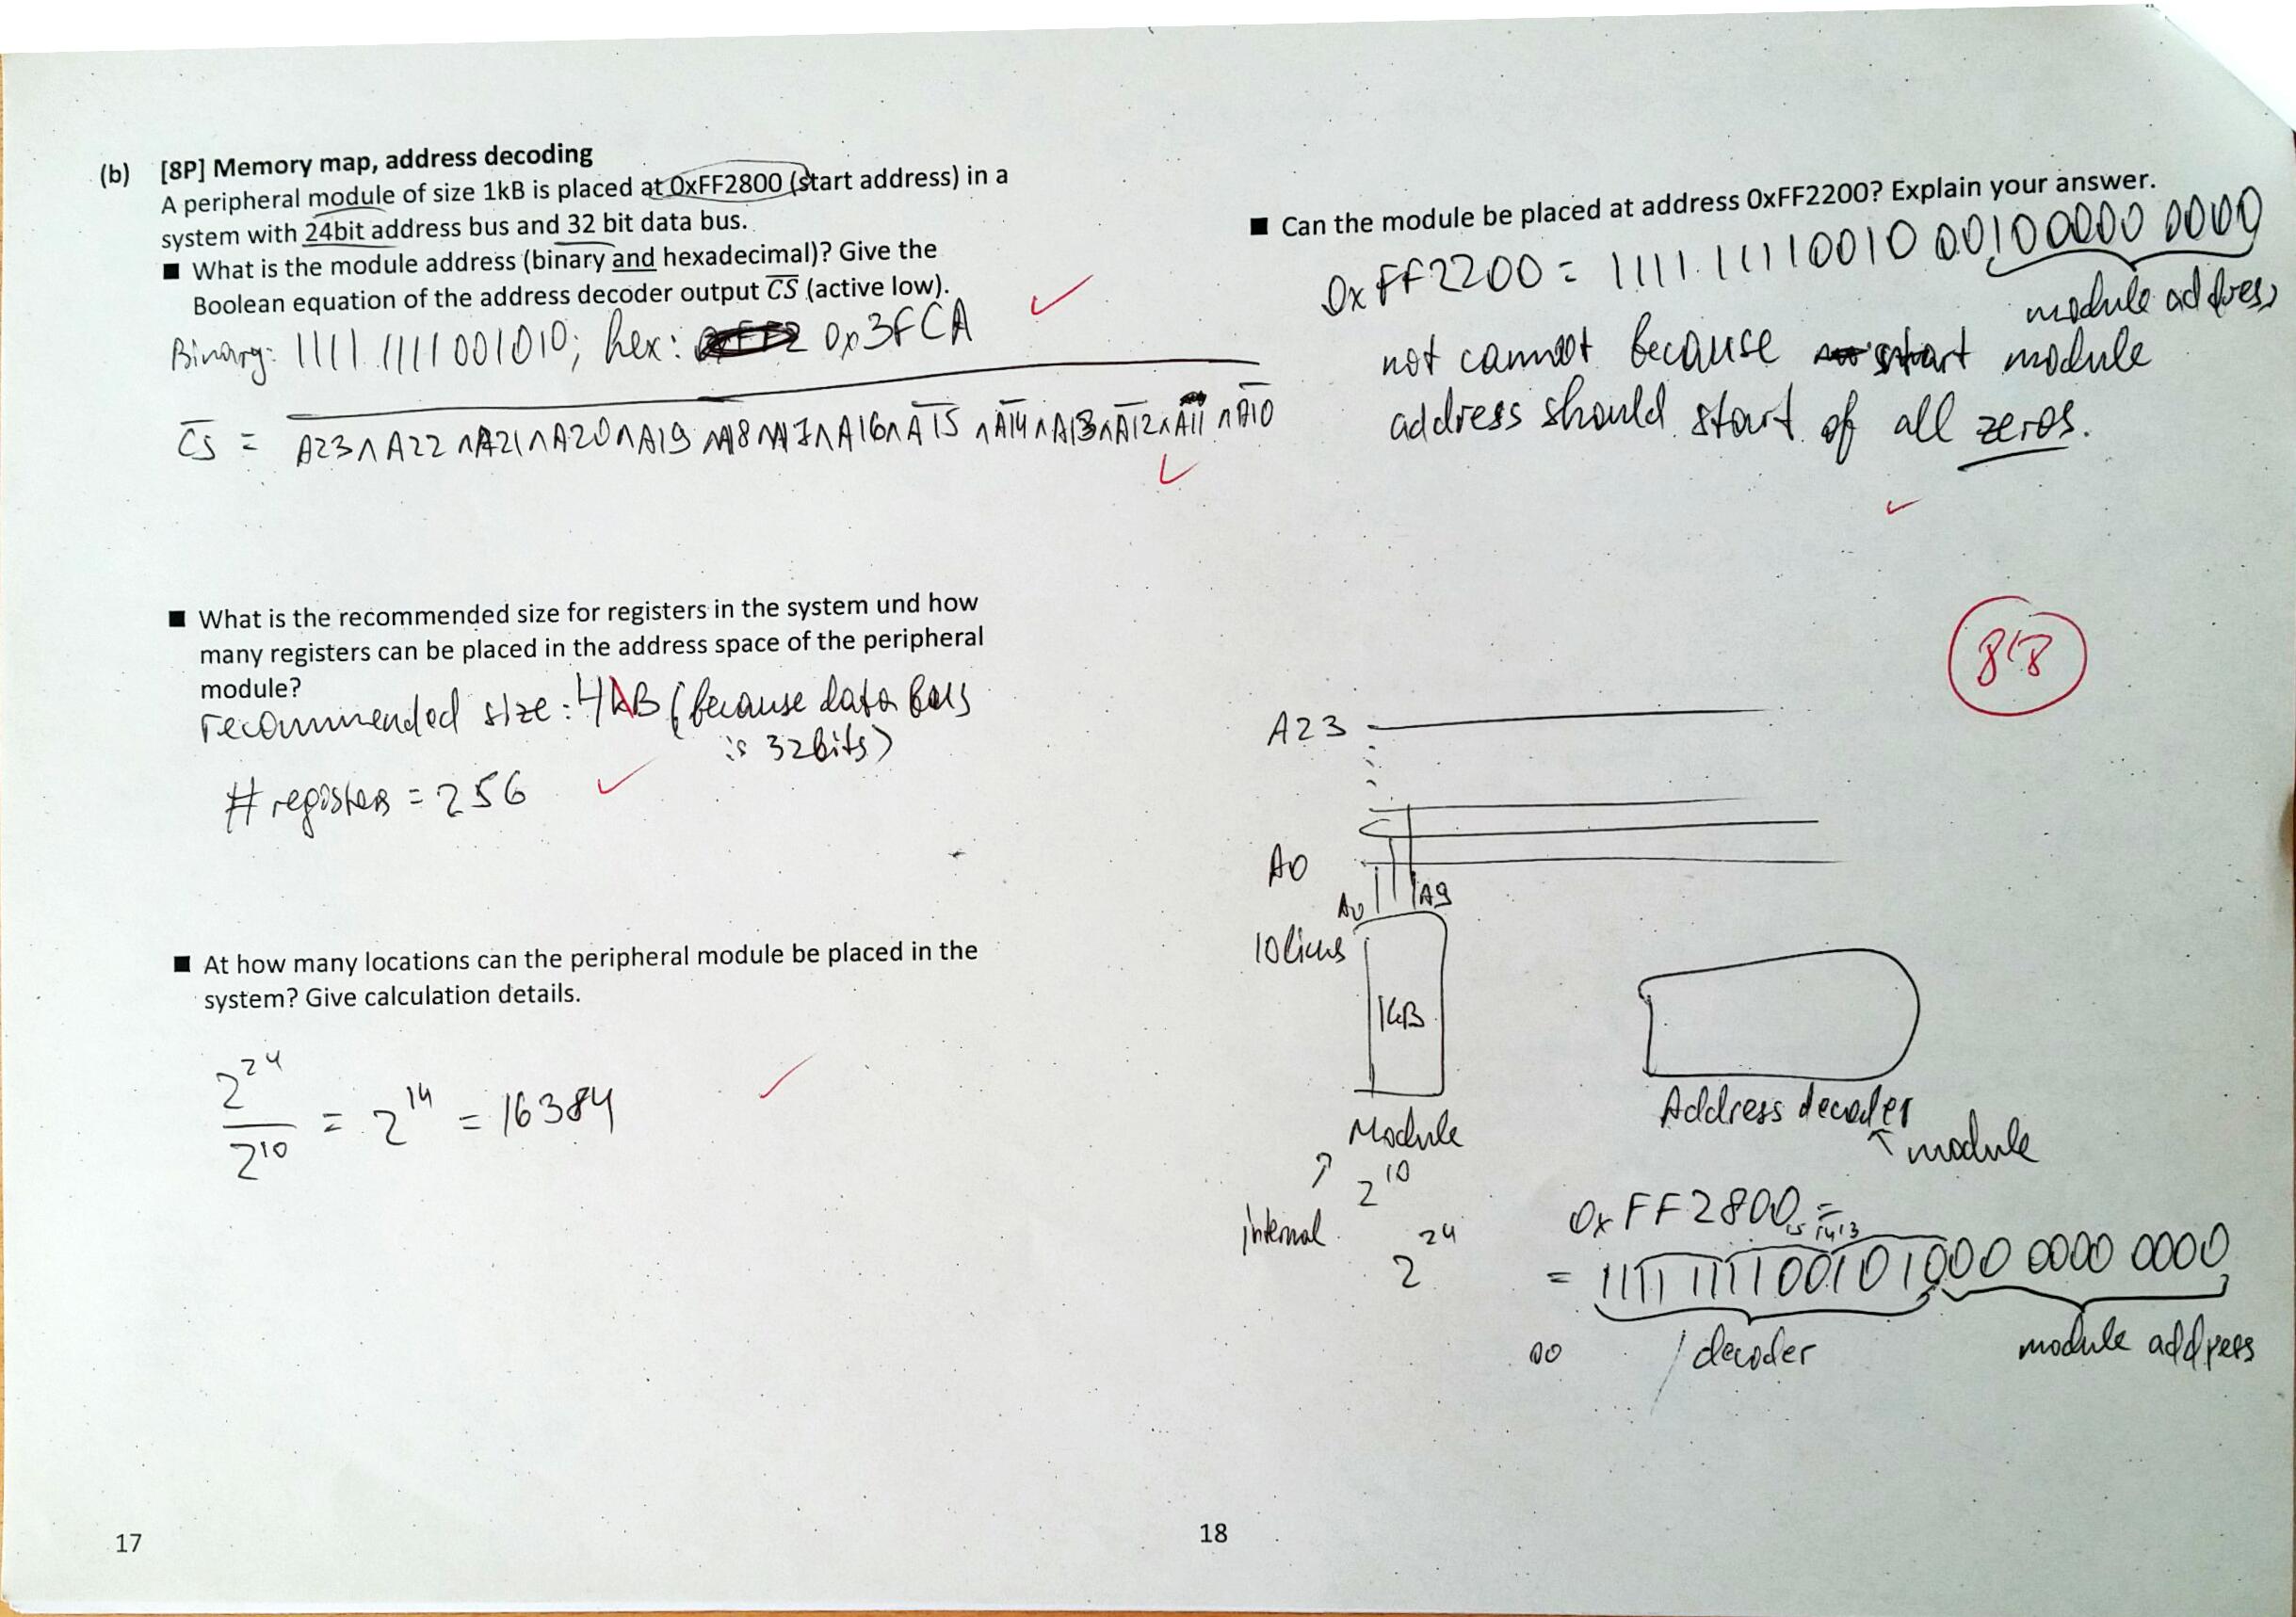 (b) [8P] Memory map, address decoding
A peripheral module of size 1kB is placed at 0xFF2800 (start address) in a
system with 24bit address bus and 32 bit data bus.
■ What is the module address (binary and hexadecimal)? Give the
Boolean equation of the address decoder output C̅S̅ (active low).
Binary: 1111 1111 001010; hex: 0x3FCA
C̅S̅ = A23∧A22∧A21∧A20∧A19∧A18∧A17∧A16∧A̅15∧A̅14∧A13∧A̅12∧A11∧A̅10
■ What is the recommended size for registers in the system und how
many registers can be placed in the address space of the peripheral
module?
recommended size: 4kB (because data bus
is 32bits)
# registers = 256
■ At how many locations can the peripheral module be placed in the
system? Give calculation details.
2^24 / 2^10 = 2^14 = 16384
17
■ Can the module be placed at address 0xFF2200? Explain your answer.
0xFF2200 = 1111 1111 0010 0010 0000 0000
module address
not cannot because start module
address should start of all zeros.
8/8
A23
A0
A0 A9
10 lines
1kB
Module
Address decoder
module
2^10
internal
2^24
0xFF2800 =
15 14 13
= 1111 1111 0010 1000 0000 0000
00
decoder
module address
18